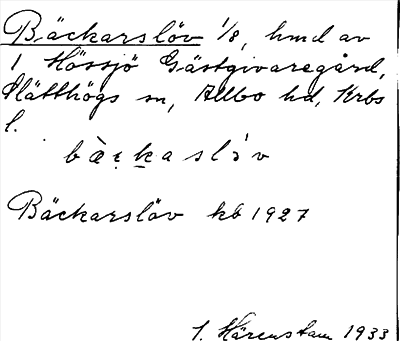 Bäckarslöv 1/8, hmd av
1 Hössjö Gästgivaregård,
Slätthögs sn, Allbo hd, Krbs
l.
bæ̀kaslə̀v
Bäckarslöv kb 1927
J. Härenstam 1933